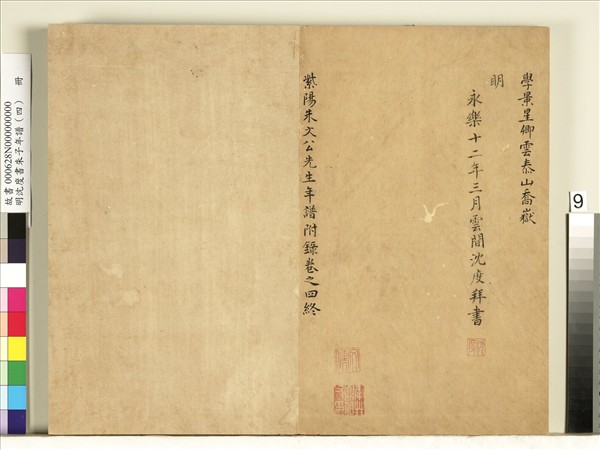 學景星卿雲泰山喬嶽
明
永樂十二年三月雲間沈度拜書
紫陽朱文公先生年譜附錄卷之四終
故書000628N000000000
明沈度書朱子年譜(四) 冊
9